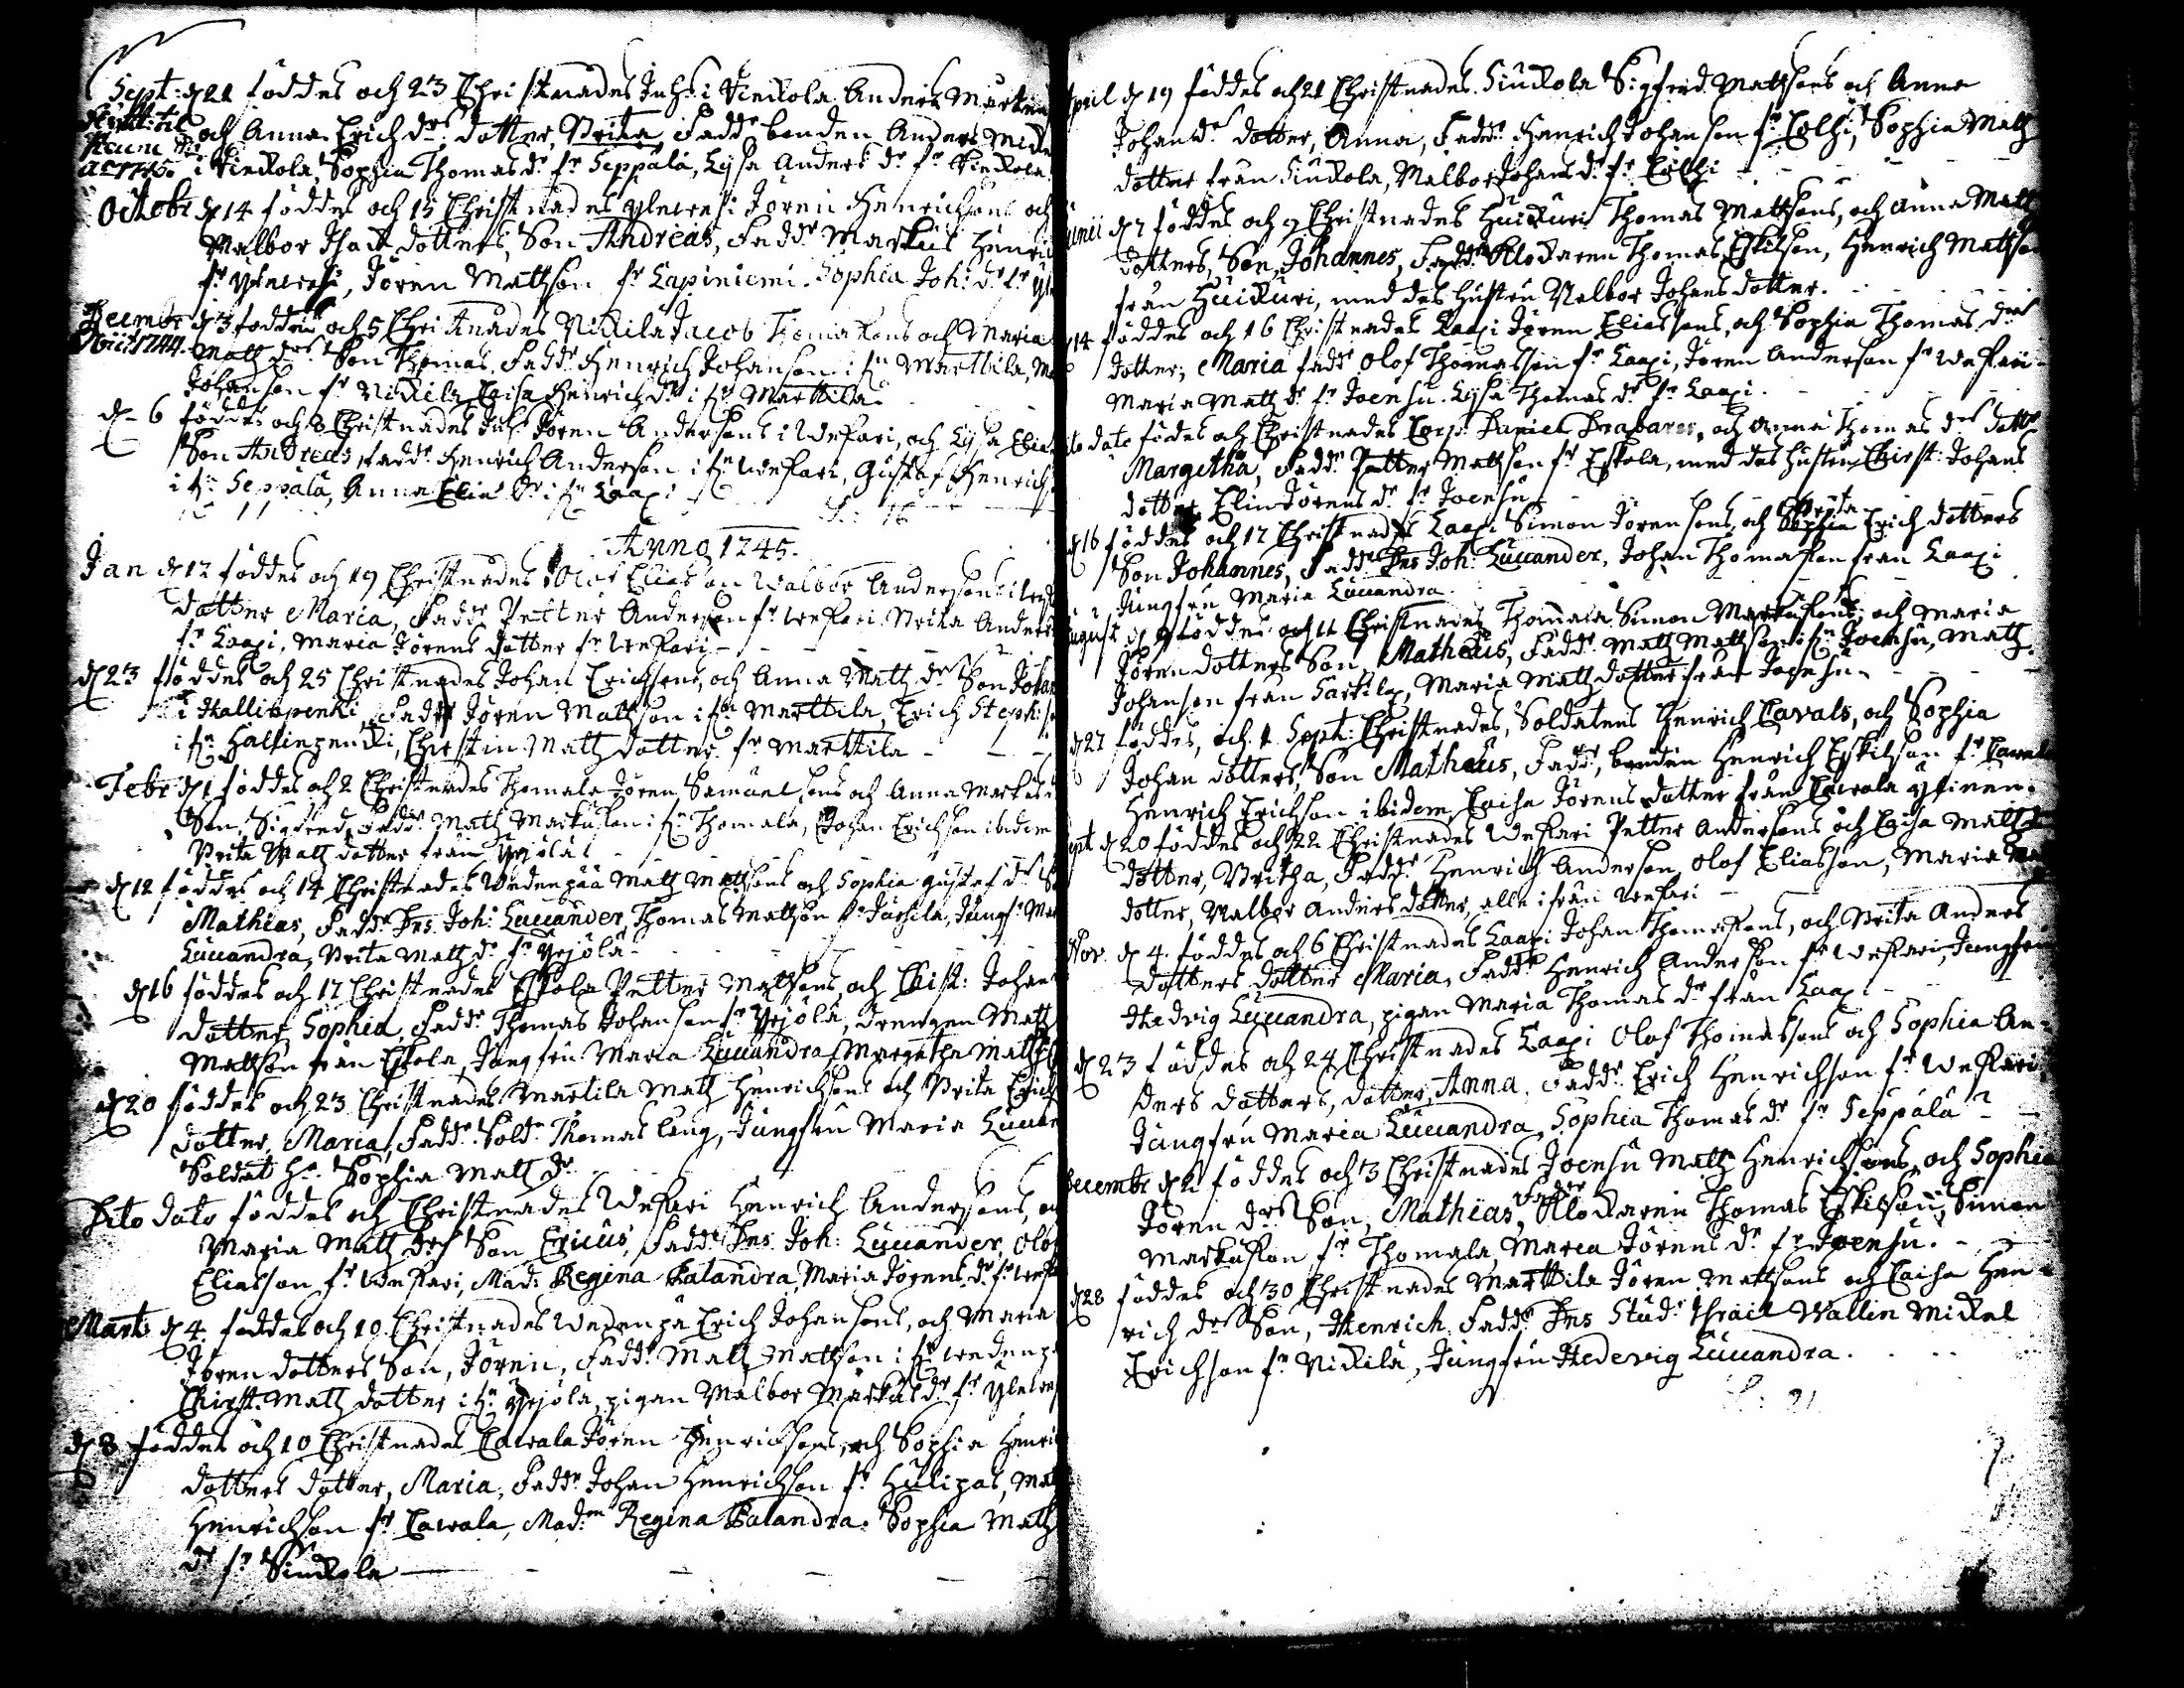 Sept: d 21 föddes och 23 Christnades Inhs: i Vinckola Anders Mårten
flytt: til och Anna Erich drs: dotter, Brita, Faddr bonden Anders Mick
ao 1745. i Vinckola, Sophia Thomas dr fr Seppälä, Lysa Anders dr fr Vinckola
Octobr d 14 föddes och 15 Christnades Ylewesi Jören Henrichsons och
Walbor Isacks dotters, Son Andreas, Faddr Markus Henric
fr Ylewesi, Jören Mattson fr Lapiniemi. Sophia Joh: dr fr Yle
Decembr d 3 föddes och 5 Christnades Nickilä Jacob Thomassons och Maria
Obiit 1744. Matz drs Son Thomas, Faddr Henrich Johanson ifrn Marttila, Ma
Johanson fr Nickilä, Caisa Henrich dr ifrn Marttila
d 6 föddes och 8 Christnades Inhs: Jören Andersons i Wefari, och Lysa Elias
Son Andreas, Faddr Henrich Anderson ifrn Wefari, Gustaf Henrichs
ifrn Seppälä, Anna Elias dr ifrn Laaxi
Anno 1745.
Jan d 12 föddes och 19 Christnades Olof Eliasson Walbor Andersons i Wef
dotter Maria, Faddr Petter Anderson fr Wefari, Brita Anders
fr Laaxi, Maria Jörens dotter fr Wefari
d 23 föddes och 25 Christnades Johan Erichsons, och Anna Matz drs Son Johan
i Hallinpenki, Faddr Jören Matthson ifrn Marttila, Erich Steph: s
ifrn Hallinpencki, Christin Matz dotter fr Marttila
Febr d 1 föddes och 2 Christnades Thomala Jören Samuelsons och Anna Markus
Son, Sigfred, Faddr Matz Markusson ifrn Thomala, Johan Erichson ibidem
Brita Matz dotter från Yrjölä
d 12 föddes och 14 Christnades Wedenpää Matz Mattsons och Sophia Gustaf drs S
Mathias, Faddr Dns Joh: Lucander, Thomas Mattson fr Jushila, Jungf: Mar
Lucandra, Brita Matz dr fr Yrjölä
d 16 föddes och 17 Christnades Eskola Petter Mattsons, och Christ: Johan
dotter, Sophia, Faddr Thomas Johanson fr Yrjölä, drengen Matz
Mattson från Eskola, Jungfru Maria Lucandra, Margetha Matz
d 20 föddes och 23 Christnades Martila Matz Henrichsons och Brita Erich
dotter, Maria, Faddr Sold: Thomas Leng, Jungfru Maria Lucan
Soldat H: Sophia Matz dr
Dito dato föddes och Christnades Wefari Henrich Andersons, oc
Maria Matz drs Son Ericus, Faddr Dns Joh: Lucander, Olof
Eliasson fr Wefari, Mad: Regina Palandra, Maria Jörens dr fr Wefa
Marti d 4 föddes och 10 Christnades Wedenpä Erich Johansons, och Maria
Jören dotters Son, Jören, Faddr Matz Mattson ifrn Wedenp
Christ: Matz dotter ifrn Yrjölä, pigan Walbor Markus dr fr Ylewes
d 8 föddes och 10 Christnades Cawala Jören Henrichsons, och Sophia Henric
dotters dotter, Maria, Faddr Johan Henrichson fr Hulipas, Mat
Henrichson fr Cawala, Mad:m Regina Palandra. Sophia Matz
dr fr Sinckola
April d 19 föddes och 21 Christnades. Siuckola Sigfred Mattsons och Anne
Johandr dotter, Anna, Faddr Henrich Johanson fr Colhi, Sophia Matz
dotter från Siuckola, Walbor Johans dr fr Colhi
Junii d 7 föddes och 9 Christnades Huickuri Thomas Mattsons, och Anna Matz
dotters, Son, Johannes, Faddr Klockaren Thomas Eskilson, Henrich Mattso
från Huickuri, med des hustru Walbor Johans dotter.
14 föddes och 16 Christnades Laaxi Jören Eliassons, och Sophia Thomas drs
dotter, Maria faddr Olof Thomasson fr Laaxi, Jören Anderson fr Wefari
Maria Matz dr fr Joensu. Lysa Thomas dr fr Laaxi.
ito dato födes och Christnades Corp: Daniel Drabares, och Anna Thomas drs dott
Margetha, Faddr Petter Mattson fr Eskola, med des hustru Christ: Johans
dotter Elin Jörens dr fr Joensu
d 16 föddes och 17 Christnades Laaxi Simon Jörensons, och Brita Erich dotters
Son Johannes, Faddr Dns Joh: Lucander, Johan Thomasson från Laaxi
Jungfru Maria Lucandra.
August d 9 föddes och 11 Christnades Thomala Simon Markusson, och Maria
Jören dotters Son, Matheus, Faddr Matz Mattson ifrn Joensu, Matz
Johanson från Sarkila, Maria Matz dotter från Joensu
d 27 föddes, och 1 Sept: Christnades, Soldatens Henrich Cavals, och Sophia
Johan dotters, Son Matheus, Faddr, bonden Henrich Eskilson fr Cawal
Henrich Erichson ibidem, Caisa Jörens dotter från Cawala
Sept d 20 föddes och 22 Christnades Wefari Petter Andersons och Caisa Matz
dotter, Britha, Faddr Henrich Anderson, Olof Eliasson, Maria
dotter, Walbor Anders dotter, alla ifrån Wefari
Nov. d 4. föddes och 6 Christnades Laaxi Johan Thomassons, och Brita Anders
dotters dotter Maria, Faddr Henrich Anderson fr Wefari, Jungfru
Hedvig Lucandra, pigan Maria Thomas dr från Laaxi
d 23 föddes och 24 Christnades Laaxi Olof Thomassons och Sophia An-
ders dotters, dotter, Anna. Faddr Erich Henrichson fr Wefari
Jungfru Maria Lucandra, Sophia Thomas dr fr Seppälä
Decembr d 2 föddes och 3 Christnades Joensu Matz Henrichsons, och Sophia
Jören drs Son, Mathias, Faddr Klockaren Thomas Eskilson, Simon
Markusson fr Thomala, Maria Jörens dr fr Joensu.
d 28 föddes och 30 Christnades Marttila Jören Mattsons och Caisa Hen
rich drs Son, Henrich Faddr Dns Stud: Israel Wallin Mickel
Erichson fr Nickilä, Jungfru Hedevig Lucandra.